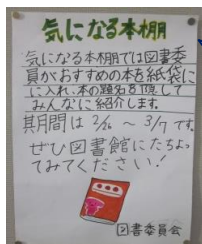 気になる本棚
気になる本棚では図書委
員がおすすめの本を紙袋に
に入れ、本の題名を隠して
みんなに紹介します。
期間は 2/26 ～ 3/7 です。
ぜひ図書館にたちよっ
てみてください！
図書委員会